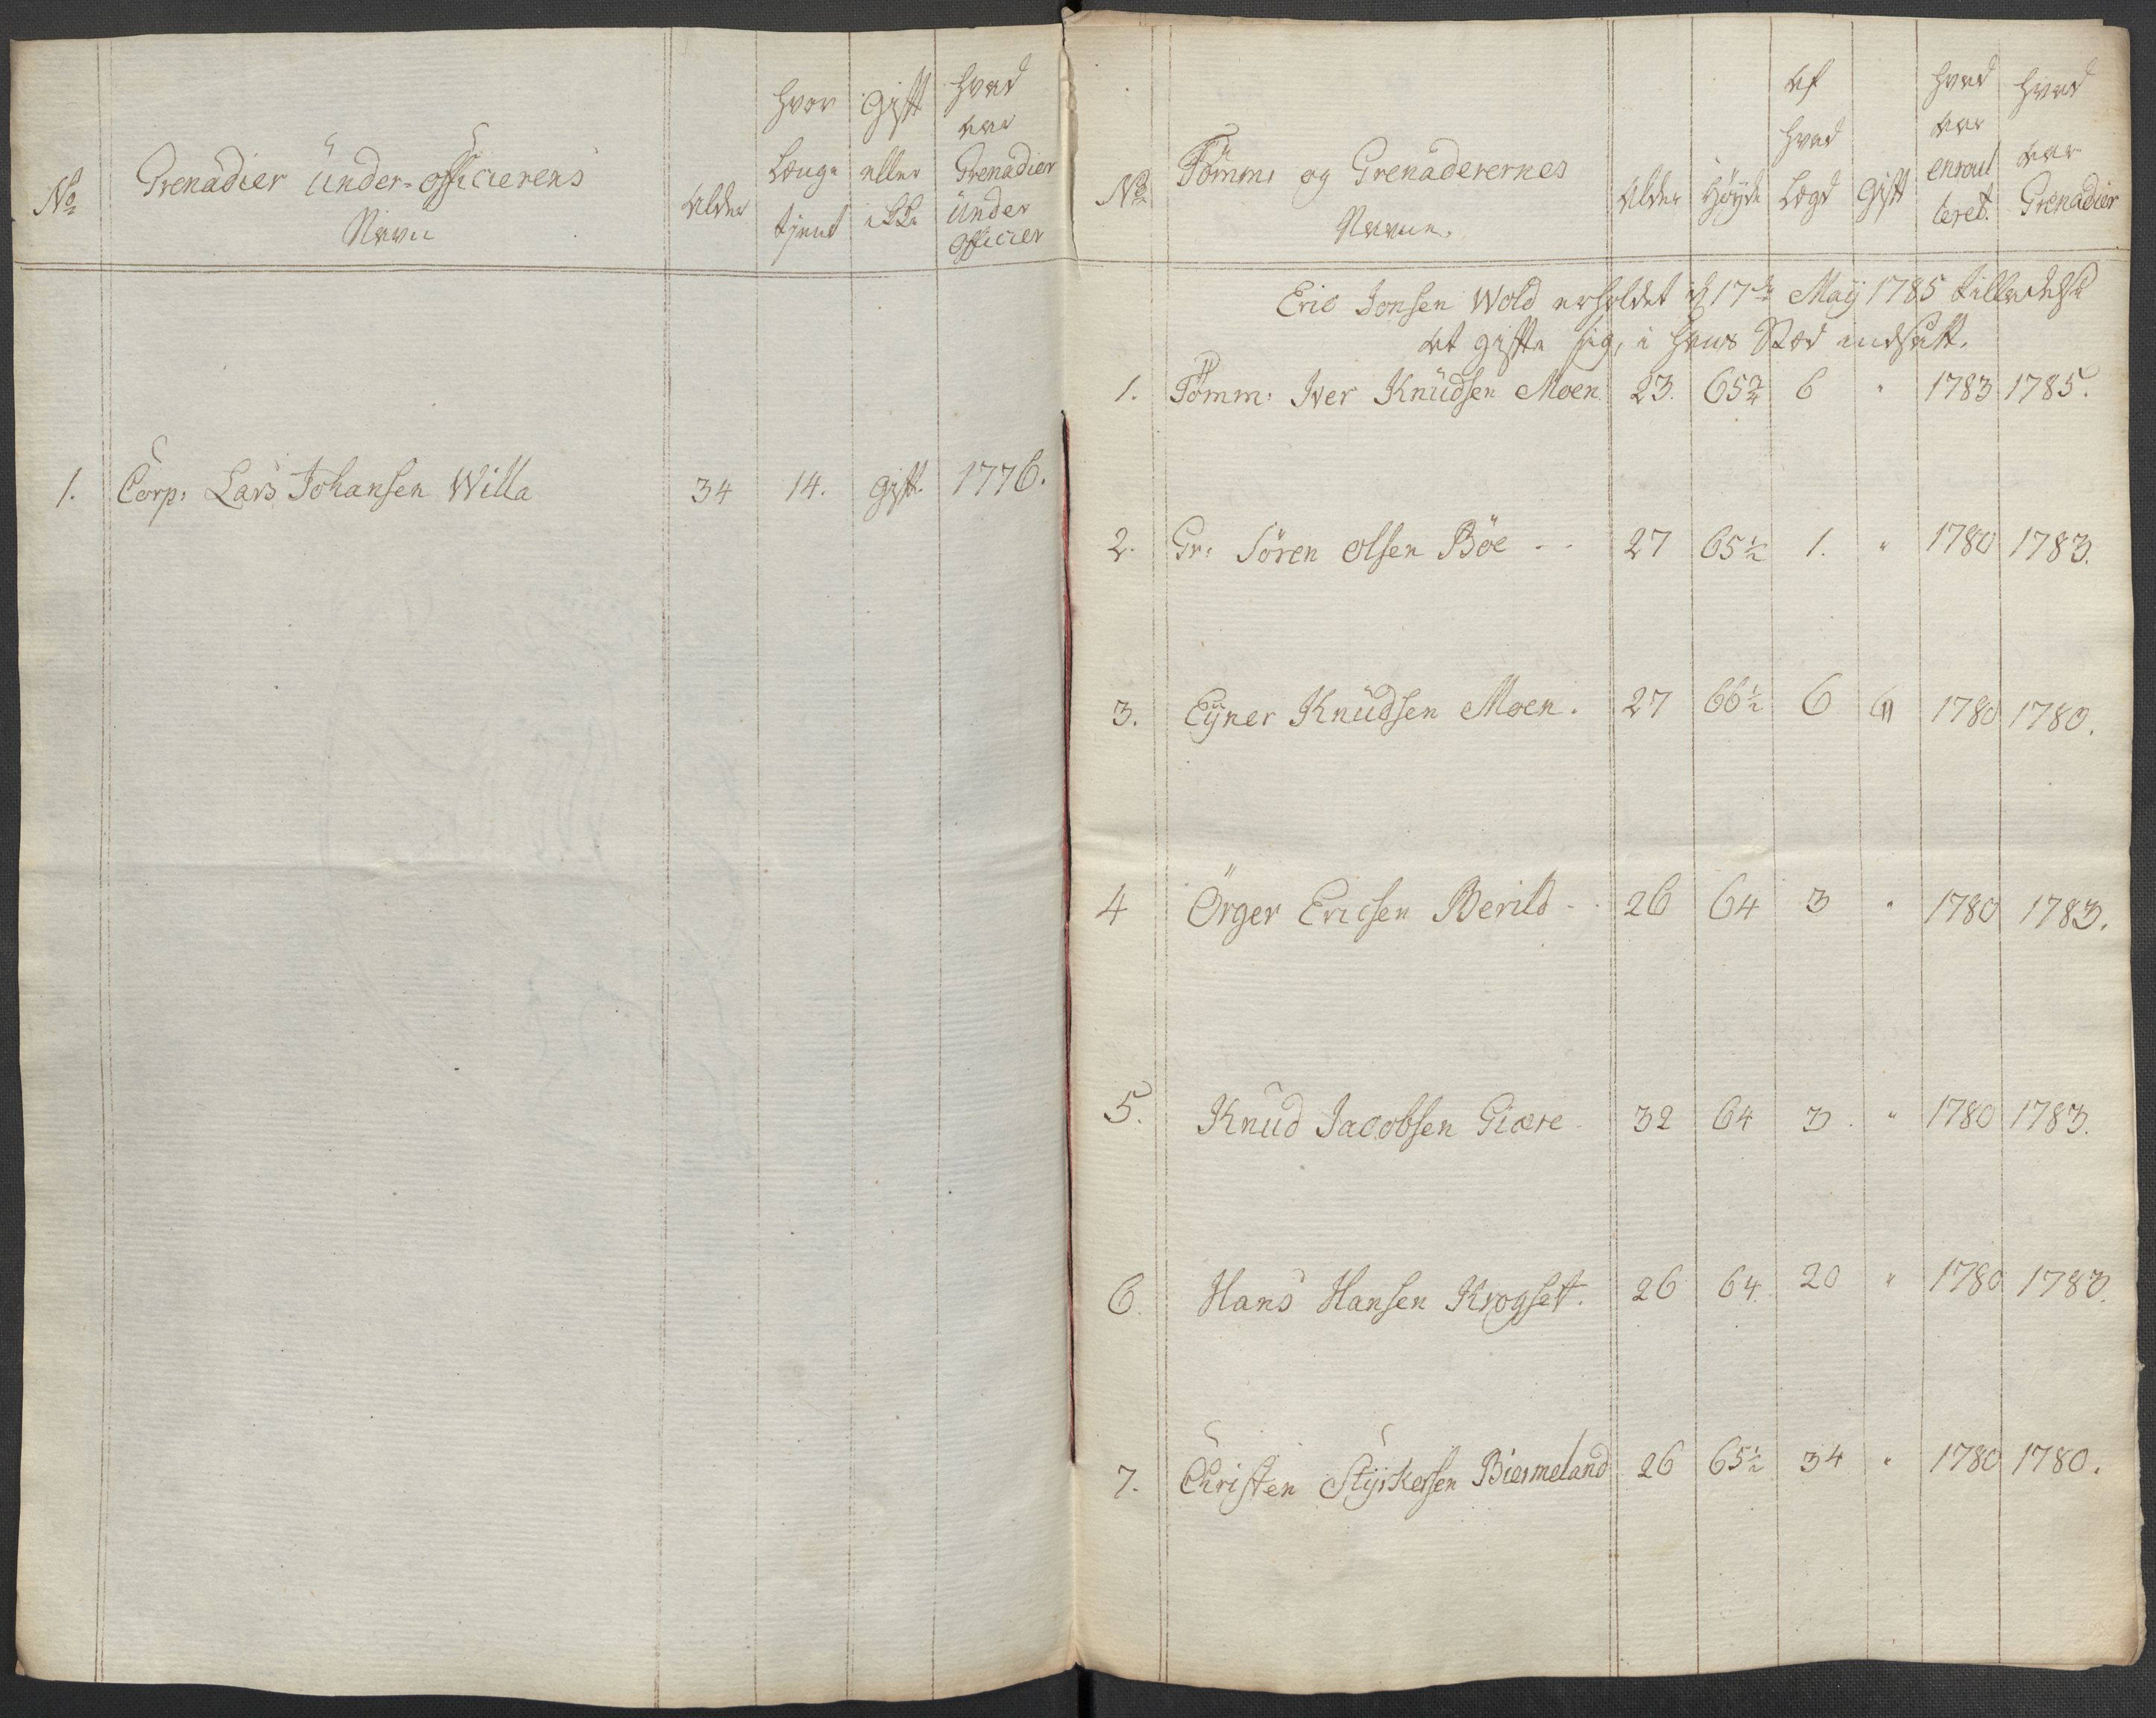 No
Grenadier Ünder-officierens
Navn
Alder
hvor
Længe
tjent
Gift
eller
ikke
hvad
aar
Grenadier
Ünder
officier
1. Corp: Lars Johansen Willa 34 14. gift. 1776.
No
Tömm: og Grenaderernes
Navne.
Alder
Höyde
af
hvad
Lægd
Gift
hvad
aar
enroul
leret.
hvad
aar
Grenadier
Eric Jonsen Wold erholdet d 17de Maij 1785 tilladelse
at gifte sig, i hans Stæd indsatt.
1. Tömm: Iver Knüdsen Moen. 23. 65 3/4 6 " 1783 1785.
2. Gr: Sören olsen Böe - - 27 65 1/2 1. " 1780 1783.
3. Eÿner Knüdsen Moen. 27 66 1/2 6 G 1780 1780.
4 Örger Ericsen Berild - . 26 64 3 " 1780 1783.
5. Knüd Jacobsen Giære - 32 64 3. " 1780 1783.
6. Hans Hansen Krogset. 26 64. 20 " 1780 1783.
7. Christen Stÿrkersen Biermeland 26 65 1/2 34 " 1780 1780.